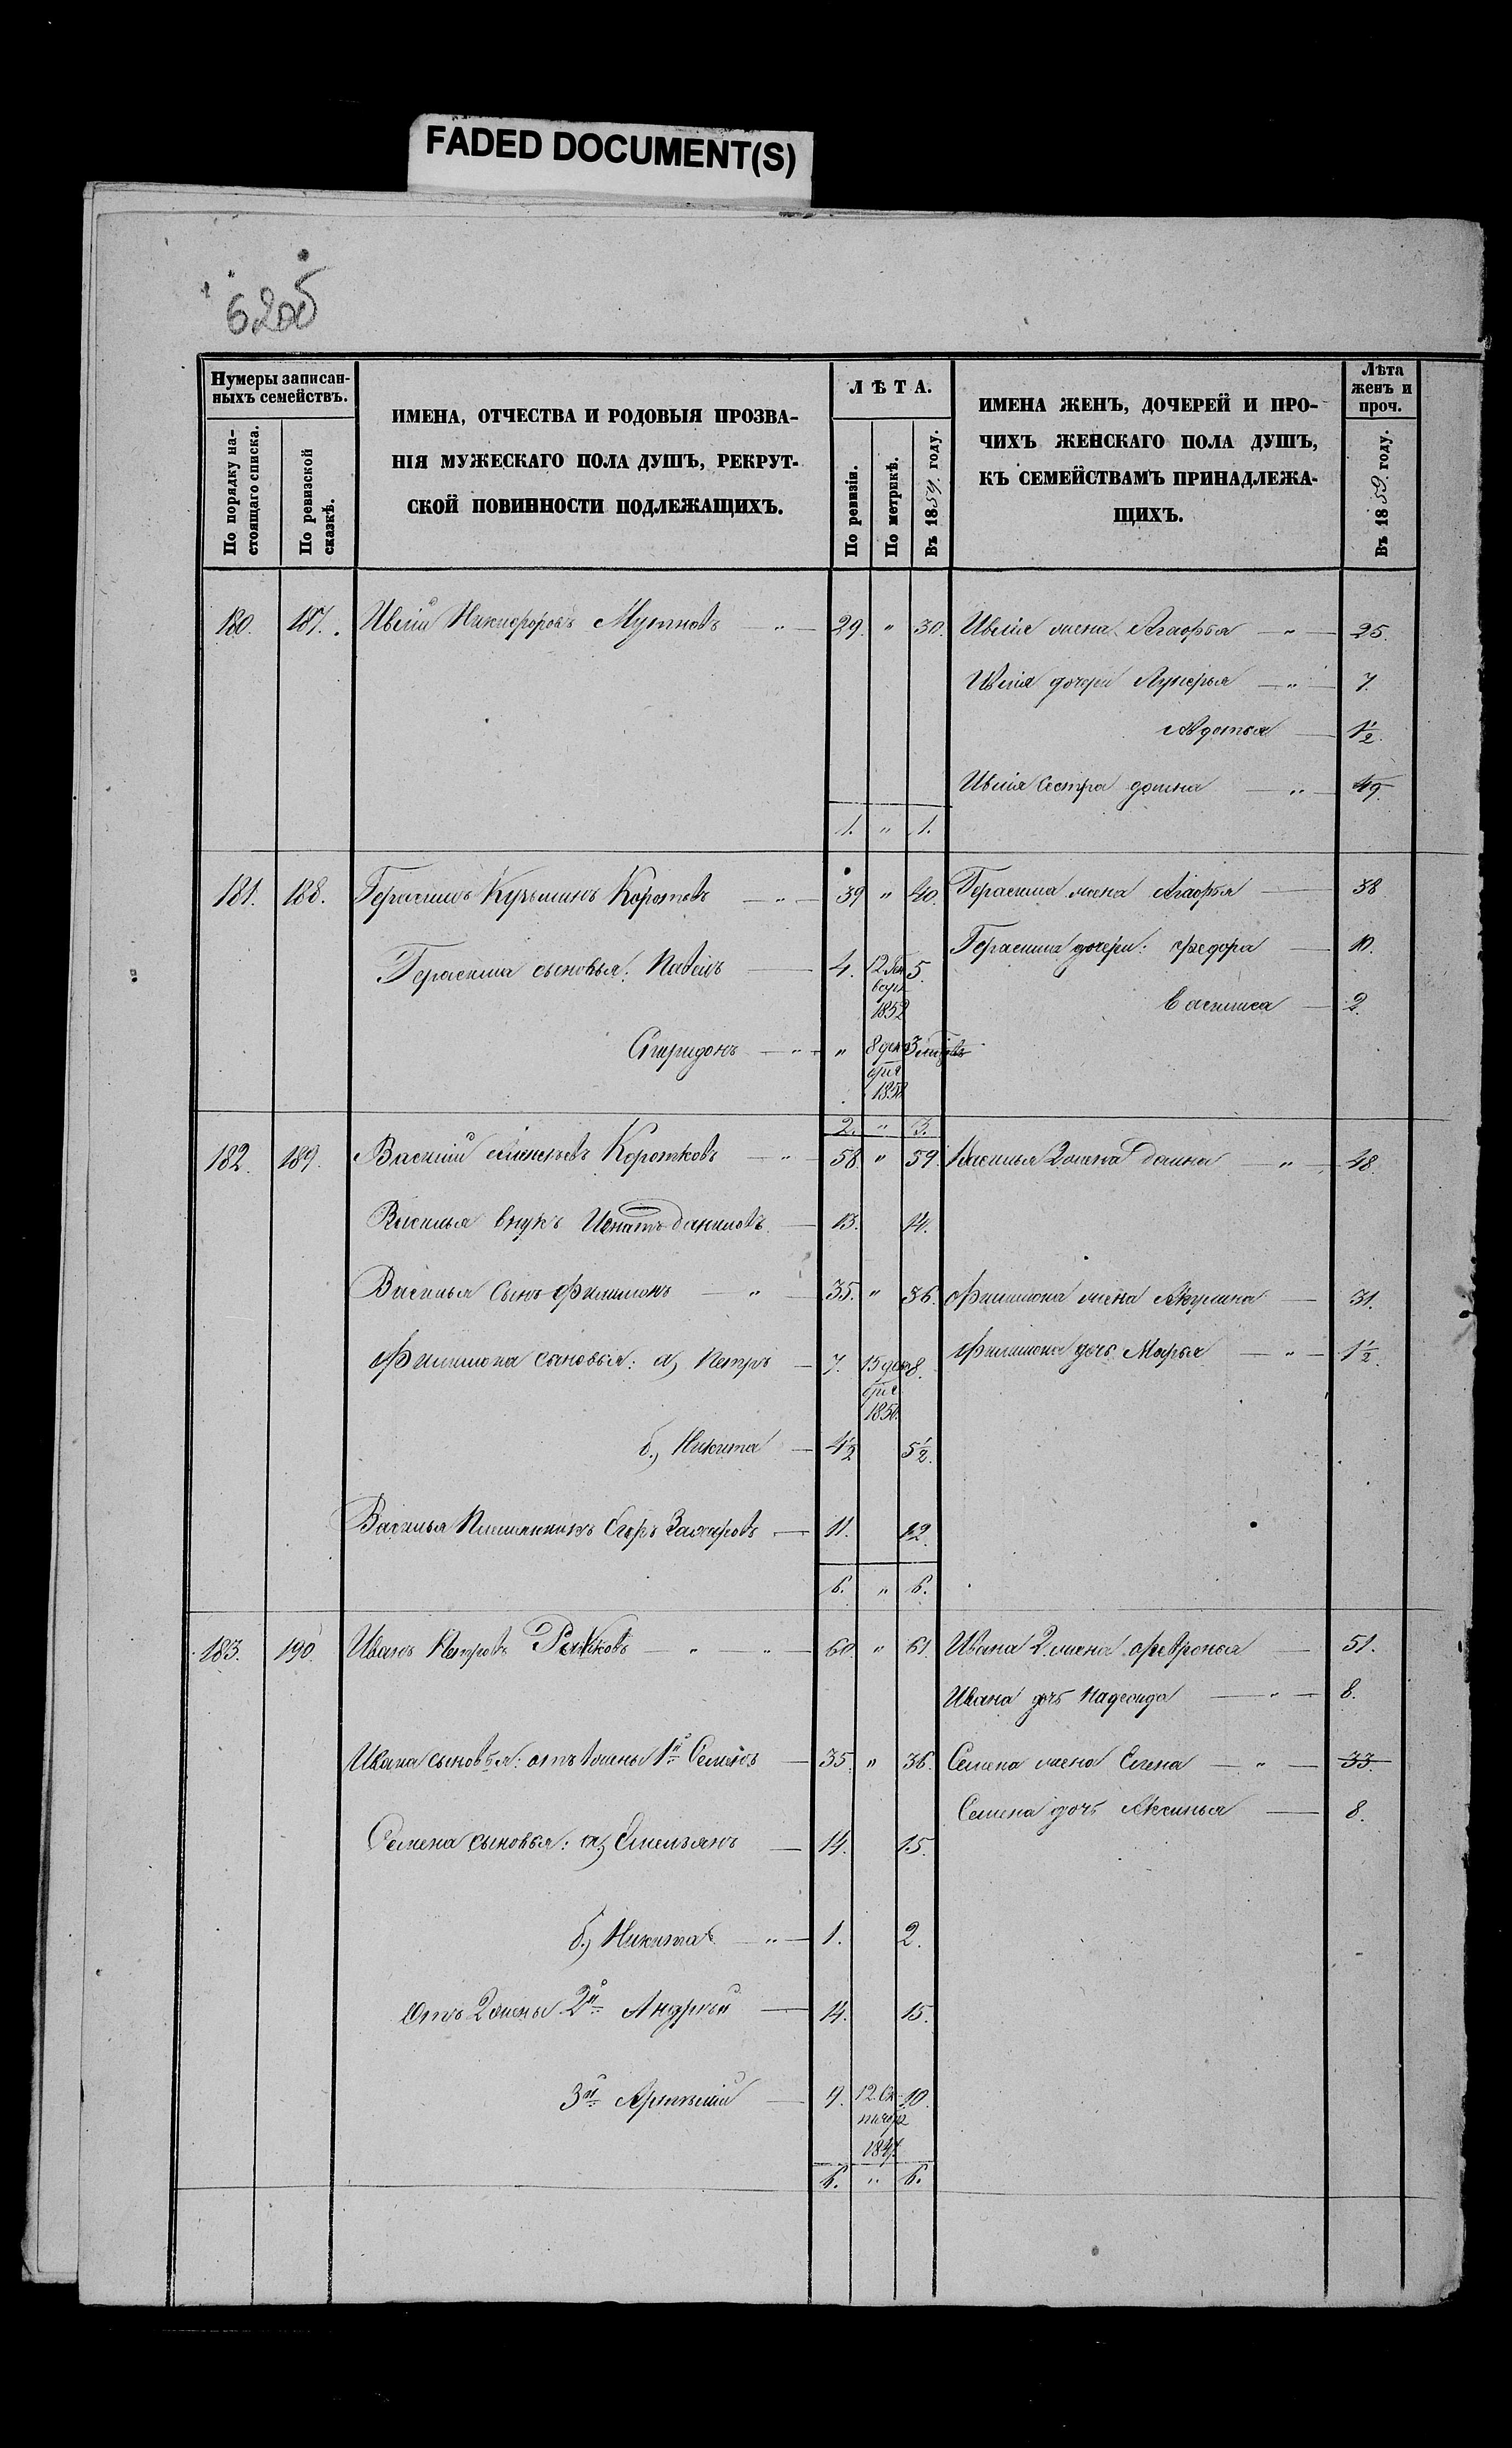 FADED DOCUMENT(S)
620б
Нумеры записан-
ныхъ семействъ.
По порядку на-
стоящаго списка.
По ревизской
сказкѣ.
ИМЕНА, ОТЧЕСТВА И РОДОВЫЯ ПРОЗВА-
НІЯ МУЖЕСКАГО ПОЛА ДУШЪ, РЕКРУТ-
СКОЙ ПОВИННОСТИ ПОДЛЕЖАЩИХЪ.
ЛѢТА.
По ревизіи.
По метрикѣ.
Въ 1859. году.
ИМЕНА ЖЕНЪ, ДОЧЕРЕЙ И ПРО-
ЧИХЪ ЖЕНСКАГО ПОЛА ДУШЪ,
КЪ СЕМЕЙСТВАМЪ ПРИНАДЛЕЖА-
ЩИХЪ.
Лѣта
женъ и
проч.
Въ 1859. году.
180. 187. Никифоровъ — " — 29. " 30. жена Агафья — " — 25.
дочери Лукерья — " — 7.
Авдотья — 1½.
сестра Домна — " — 49.
1. " 1.
181. 188. Герасимъ Кузьминъ Коротковъ — " — 39 " 40. Герасима жена Агафья — 38
Герасима сыновья: Павелъ — 4. 12 Ян 5. Герасима дочери: Федора — 10.
варя
1852
Василиса — 2.
Спиридонъ — " — " 8 дека 3 мѣсяцовъ
бря
1858
2. " 3.
182. 189. Василій Алексѣевъ Коротковъ — " — 58. " 59. Василья 2 жена Домна — " — 48.
Василья внукъ Игнатъ Даниловъ — 13. 14.
Василья сынъ Филимонъ — " — 35. " 36. Филимона жена Акулина — 31.
Филимона сыновья: а, Петръ — 7. 15 дека 8. Филимона дочь Марья — " — 1½.
бря
1850.
б., Никита — 4½ 5½.
Василья Племянникъ Егоръ Захаровъ — 11. 12.
6. " 6.
183. 190. Иванъ Петровъ — " — " — 60. " 61. Ивана 2 жена Февронья — 51.
Ивана дочь Надежда — " — 8.
Ивана сыновья: отъ 1 жены 1й Семенъ — 35. " 36. Семена жена Елена — " — 33.
Семена дочь Аксинья — 8.
Семена сыновья: а, Емельянъ — 14. 15.
б., Никита — " — 1. 2.
Отъ 2 жены 2й Андрей — 14. 15.
3й Артемій — 9. 12 Ок 10.
тября
1849
6. " 6.